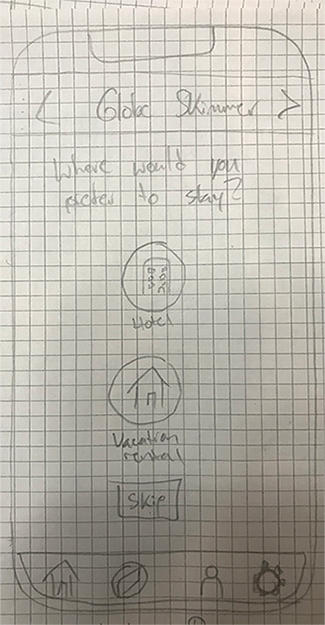 < Globe Skimmer >
Where would you
prefer to stay?
Hotel
Vacation
rental
Skip